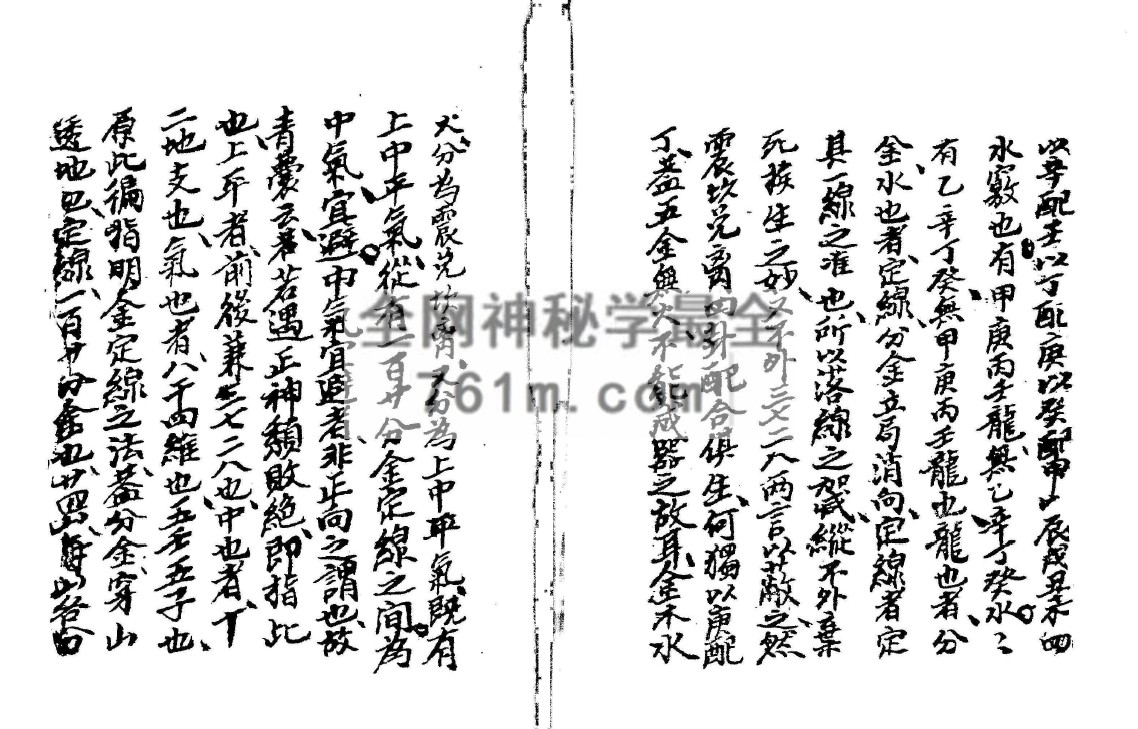 以辛配壬以丁配庚以癸配甲以辰戌丑未四
水竅也有甲庚丙壬龍無乙辛丁癸水水
有乙辛丁癸無甲庚丙壬龍也龍也者分
金水也者定線分金立局消向定線者定
其一線之准也所以落線之加減縱不外棄
死挨生之妙又不外三七二八兩言以蔽之然
震坎兌离四卦配合俱生何獨以庚配
丁蓋五金無火不能成器之故耳金木水
火分為震兌坎离又分為上中平氣既有
上中平氣從有一百廿分金定線之間為
中氣宜避中氣宜避者非正向之謂也故
青囊云若遇正神顛敗絕即指此
也上平者前後兼三七二八也中也者十
二地支也氣也者八干四維也五壬五子也
原此徧指明金定線之法蓋分金穿山
透地定線一百廿分金也廿四山每山各
全网神秘学最全
761m.com